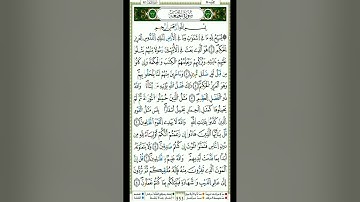 سُورَةُ الجُمُعَةِ
بِسْمِ اللَّهِ الرَّحْمَٰنِ الرَّحِيمِ
يُسَبِّحُ لِلَّهِ مَا فِي السَّمَٰوَٰتِ وَمَا فِي الْأَرْضِ الْمَلِكِ الْقُدُّوسِ الْعَزِيزِ
الْحَكِيمِ ١ هُوَ الَّذِي بَعَثَ فِي الْأُمِّيِّينَ رَسُولًا مِنْهُمْ يَتْلُوا عَلَيْهِمْ
ءَايَٰتِهِ وَيُزَكِّيهِمْ وَيُعَلِّمُهُمُ الْكِتَٰبَ وَالْحِكْمَةَ وَإِن كَانُوا
مِن قَبْلُ لَفِي ضَلَٰلٍ مُبِينٍ ٢ وَءَاخَرِينَ مِنْهُمْ لَمَّا يَلْحَقُوا بِهِمْ
وَهُوَ الْعَزِيزُ الْحَكِيمُ ٣ ذَٰلِكَ فَضْلُ اللَّهِ يُؤْتِيهِ مَن يَشَاءُ وَاللَّهُ
ذُو الْفَضْلِ الْعَظِيمِ ٤ مَثَلُ الَّذِينَ حُمِّلُوا التَّوْرَىٰةَ ثُمَّ لَمْ
يَحْمِلُوهَا كَمَثَلِ الْحِمَارِ يَحْمِلُ أَسْفَارًا بِئْسَ مَثَلُ الْقَوْمِ
الَّذِينَ كَذَّبُوا بِـَٔايَٰتِ اللَّهِ وَاللَّهُ لَا يَهْدِي الْقَوْمَ الظَّٰلِمِينَ ٥
قُلْ يَٰأَيُّهَا الَّذِينَ هَادُوا إِن زَعَمْتُمْ أَنَّكُمْ أَوْلِيَاءُ لِلَّهِ مِن
دُونِ النَّاسِ فَتَمَنَّوُا الْمَوْتَ إِن كُنتُمْ صَٰدِقِينَ ٦ وَلَا يَتَمَنَّوْنَهُ
أَبَدًا بِمَا قَدَّمَتْ أَيْدِيهِمْ وَاللَّهُ عَلِيمٌ بِالظَّٰلِمِينَ ٧ قُلْ إِنَّ
الْمَوْتَ الَّذِي تَفِرُّونَ مِنْهُ فَإِنَّهُ مُلَٰقِيكُمْ ثُمَّ تُرَدُّونَ
إِلَىٰ عَٰلِمِ الْغَيْبِ وَالشَّهَٰدَةِ فَيُنَبِّئُكُم بِمَا كُنتُمْ تَعْمَلُونَ ٨